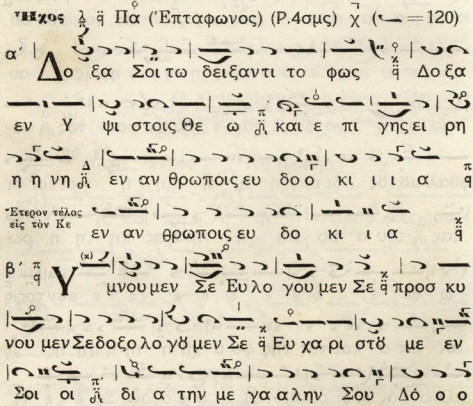 Ἦχος λ π q̈ Πα (Ἑπταφωνος) (Ρ.4σμς) χ ( = 120)
α´ Δο ξα Σοι τω δειξαντι το φως Δο ξα
εν Υ ψι στοις Θε ω και ε πι γης ει ρη
η η νη Δ εν αν θρωποις ευ δο ο κι ι ι α π q
Ἕτερον τέλος
εἰς τὸν Κε
εν αν θρωποις ευ δο κι ι α κ q
β´ π q Υ μνουμεν Σε Ευ λο γου μεν Σε προσ κυ
νου μεν Σε δοξο λο γȣ μεν Σε Ευ χα ρι στȣ με εν
Σοι οι δι α την με γα αλην Σου Δό ο ο